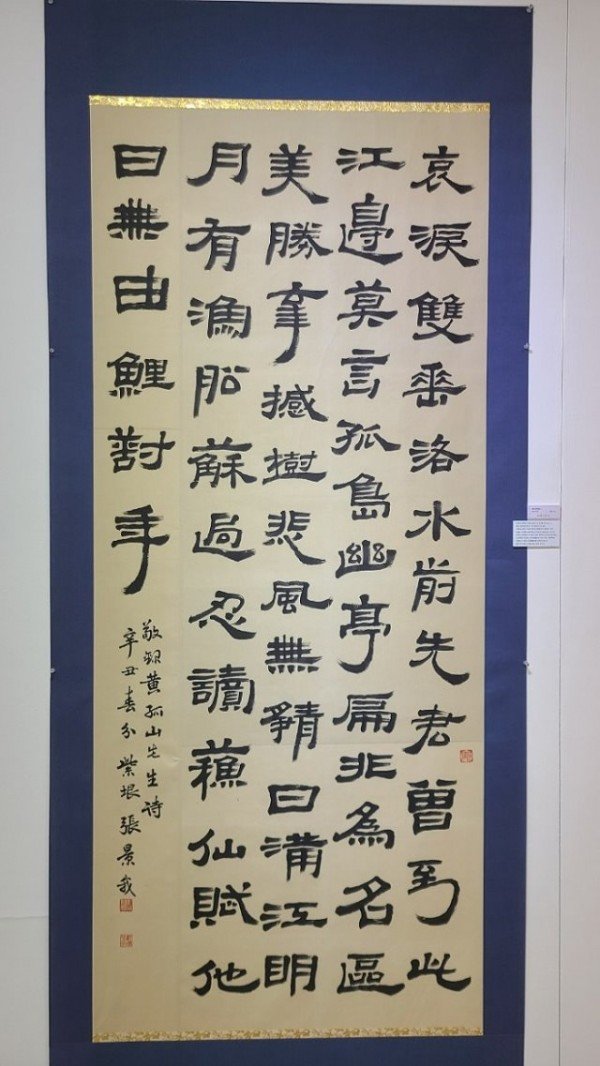 哀淚雙垂洛水前先君曾到此
江邊莫言孤島幽亭扁非為名區
美勝牽撼樹悲風無靜日滿江明
月有漁船蘇過忍讀蘓仙賦他
日無由鯉對年
敬録黄孤山先生詩
辛丑春分 紫垠 張景